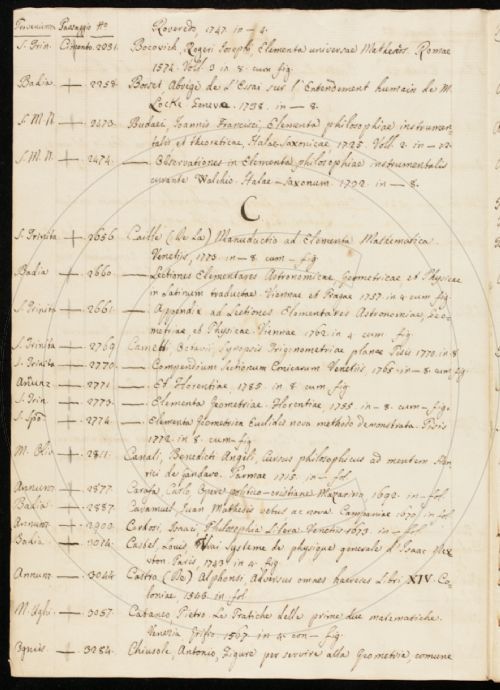 Provenienza Passaggio No
Roveredo, 1747. in - 4.
S. Trin. 2031. Boscovich, Rogeri Joseph, Elementa universae Matheseos. Romae
1574. Voll. 3 in 8. cum fig.
Badia + 2258. Bosset Abrégé de l'Essai sur l'Entendement humain de M.
Locke. Geneve. 1738. in - 8.
S. M. N. + 2473. Budaei, Joannis Francisci, Elementa philosophiae instrumen
talis et theoreticae, Halae-Saxonicae. 1725. Voll. 2. in - 12.
S. M. N. + 2474. — Observationes in Elementa philosophiae instrumentalis
curante Walchio. Halae-Saxonum. 1732. in - 8.
C
S. Trinita + 2656. Caille (De La) Manuductio ad Elementa Mathematica.
Venetijs, 1773. in - 8 cum - fig.
Badia + 2660. — Lectiones Elementares Astronomicae, Geometricae et Physicae
in Latinum traductae. Viennae et Pragae 1757. in 4. cum fig.
S. Trinita + 2661. — Appendix ad Lectiones Elementares Astronomiae, Geo-
metriae, et Physicae. Viennae 1762. in 4. cum fig.
S. Trinita + 2769. Octavii, Synopsis Trigonometriae planae Pisis 1770. in 8
S. Trinita + 2770. — Compendium Sectionum Conicarum Venetiis, 1765. in - 8. cum fig.
Anunz + 2771. — Et Florentiae. 1785. in 8. cum fig
S. Trin. + 2773. — Elementa Geometriae. Florentiae, 1755. in - 8. cum - fig.
S. Spo + 2774. — Elementa Geometriae Euclidis nova methodo demonstrata. Pisis
1772. in 8. cum - fig
M. Oliv. + 2811. Canali, Benedicti Angeli, Cursus philosophicus ad mentem Hen-
rici de Gandavo. Parmae 1715. in - fol
Annunz + 2877. Carafa, Carlo, Opere politico-cristiane. Mazarino, 1692. in - fol.
Badia + 2887. Caramuel, Juan Mathesis vetus ac nova. Campaniae 1670. in fol
Annunz + 2900. Cardosi, Isaaci, Philosophia Libera. Venetiis 1673. in - fol
Badia + 3014. Castel, Louis, Vrai Systeme de physique generale d'Isaac New
vton Paris, 1743. in 4. fig.
Annunz + 3044. Castro (De) Alphonsi, Adversus omnes haereses Libri XIV. Co-
loniae 1543. in fol
M. Ughi + 3057. Cataneo, Pietro, Le Pratiche delle prime due matematiche.
Venezia Griffo 1567. in 4. con - fig.
+ 3284. Chiusole, Antonio, Figure per servire alla Geometria, comune